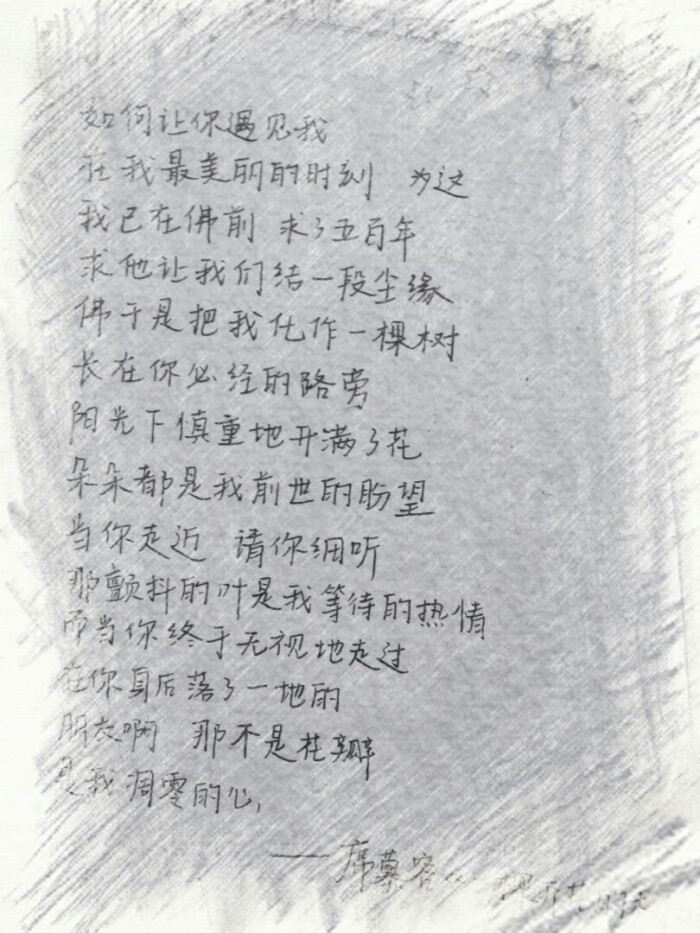 如何让你遇见我
在我最美丽的时刻 为这
我已在佛前 求了五百年
求他让我们结一段尘缘
佛于是把我化作一棵树
长在你必经的路旁
阳光下慎重地开满了花
朵朵都是我前世的盼望
当你走近 请你细听
那颤抖的叶是我等待的热情
而当你终于无视地走过
在你身后落了一地的
朋友啊 那不是花瓣
是我凋零的心,
——席慕容